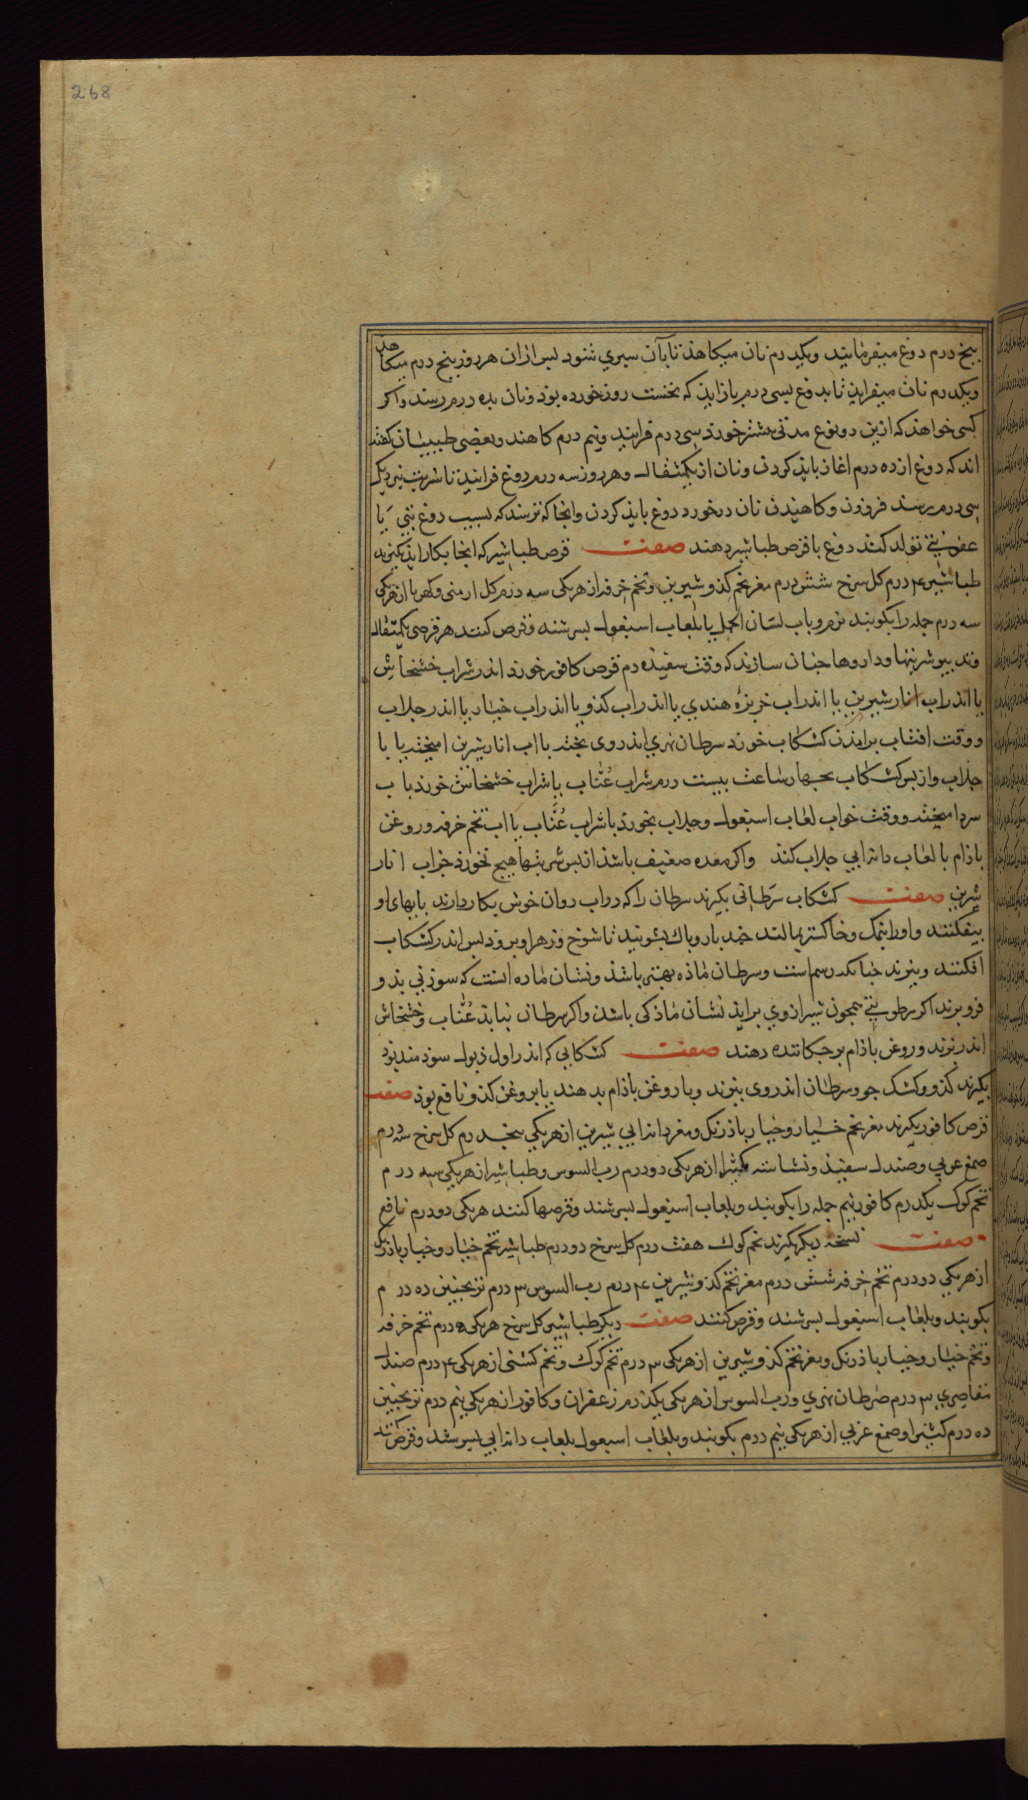 268
پنج درم دوغ میفزمایند ویکدرم نان میکاهند تا بآن سیری شود پس ازان هر روز پنج درم میکاهد
ویکدرم نان میفزاید تا بدوغ بسی درم بازاید که نخست روز خورده بوذ ونان بده درم رسد واکر
کسی خواهذ که ازین دونوع مدتی بیشتر خورد سی درم فزایند ونیم درم کاهند وبعضی طبیبان کفته
اند که دوغ از ده درم اغاز بایذ کردن ونان از یکمثقال وهر روز سه درم دوغ فزایند تا شربت نزدیک
سی درم رسد فزوذن وکاهیدن نان درخورد دوغ بایذ کردن وانجا که ترسند که بسبب دوغ تبی یا
عفونتی تولد کند دوغ با قرص طباشیر دهند صفت قرص طباشیر که اینجا بکار اید بکیرند
طباشیر ۴ درم کل سرخ شش درم مغز تخم کذو شیرین وتخم خرفه از هریکی سه درم کل ارمنی وکهربا از هریکی
سه درم جمله را بکوبند نرم وباب لسان الحمل یا بلعاب اسبغول بسرشند وقرص کنند هر قرصی یکمثقال
وتدبیر شربتها وداروها جنان سازند که وقت سفیده دم قرص کافور خورد اندر شراب خشخاش
یا اندر اب انار شیرین یا اندر اب خربزۀ هندی یا اندر اب کذو یا اندر اب خیار یا اندر جلاب
ووقت افتاب برامذن کشکاب خورد سرطان نهری اندر وی پخته با اب انار شیرین امیخته یا با
جلاب واز پس کشکاب بجهار ساعت بیست درم شراب عناب یا شراب خشخاش خورد با ب
سرد امیخته ووقت خواب لعاب اسبغول وجلاب بخورد با شراب عناب یا اب تخم خرفه وروغن
باذام با لعاب دانه ابی جلاب کنذ واکر معده ضعیف باشذ از پس شربتها هیج نخورد جزاب انار
شیرین صفت کشکاب سرطانی بکیرند سرطان را که در اب روان خوش بکار دارند پایهای او
بیفکنند واو را بنمک وخاکستر بمالند جند بار وپاک بشویند تا شوخ وزهر او برود پس اندر کشکاب
افکنند وبپزند جنانکه رسم است وسرطان ماده بهتر باشذ ونشان ماده انست که سوزنی بدو
فروبرند اکر رطوبتی همجون شیر از وی براید نشان ماذکی باشذ واکر سرطان نیابذ عناب وخشخاش
اندر پزند وروغن باذام بر جکانده دهند صفت کشکابی که اندر اول ذبول سوذمند بوذ
بکیرند کذو وکشک جو وسرطان اندر وی بپزند وبا روغن باذام بدهند یا بروغن کذو نافع بوذ صفت
قرص کافور بکیرند مغز تخم خیار وخیار باذرنک ومغز دانه ابی شیرین از هریکی پنجدرم کل سرخ سه درم
صمغ عربی وصندل سفیذ ونشاسته کثیرا از هریکی دو درم رب السوس وطباشیر از هریکی سه در م
تخم کوک یکدرم کافور نیم جمله را بکوبند وبلعاب اسبغول بسرشند وقرصها کنند هریکی دو درم نافع
صفت نسخه دیکر بکیرند تخم کوک هفت درم کل سرخ دو درم طباشیر تخم خیار وخیار باذرنک
از هریکی دو درم تخم خرفه شش درم مغز تخم کذو شیرین ۴ درم رب السوس ۳ درم ترنجبین ده در م
بکوبند وبلعاب اسبغول بسرشند وقرص کنند صفت دیکر طباشیر کل سرخ هریکی ۵ درم تخم خرفه
وتخم خیار وخیار باذرنک ومغز تخم کذو شیرین از هریکی ۳ درم تخم کوک وتخم کشنی از هریکی ۴ درم صندل
مقاصری ۳ درم سرطان نهری ورب السوس از هریکی یکدرم زعفران وکافور از هریکی نیم درم ترنجبین
ده درم کثیرا وصمغ عربی از هریکی نیم درم بکوبند وبلعاب اسبغول بلعاب دانه ابی بسرشند وقرص کنند